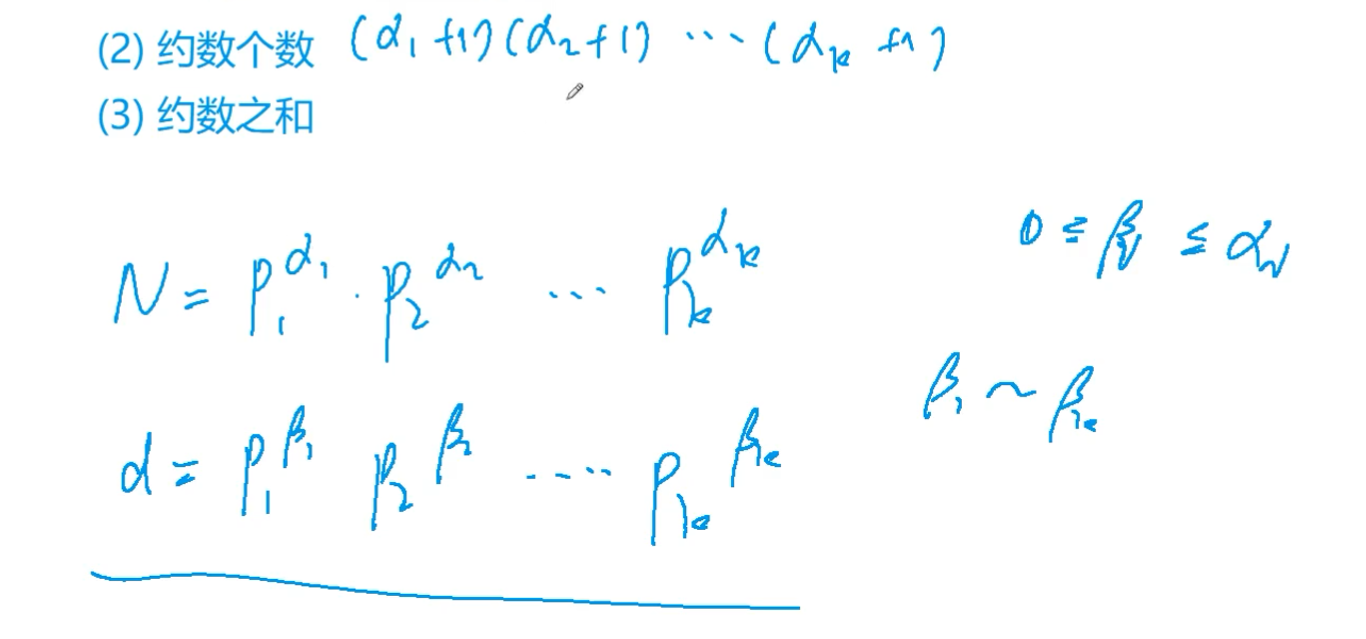 (2) 约数个数 (α₁+1)(α₂+1) ··· (αₖ+1)
(3) 约数之和
0 ≤ βᵢ ≤ αᵢ
N = P₁^α₁ · P₂^α₂ ··· Pₖ^αₖ
β₁ ~ βₖ
d = P₁^β₁ P₂^β₂ ····· Pₖ^βₖ